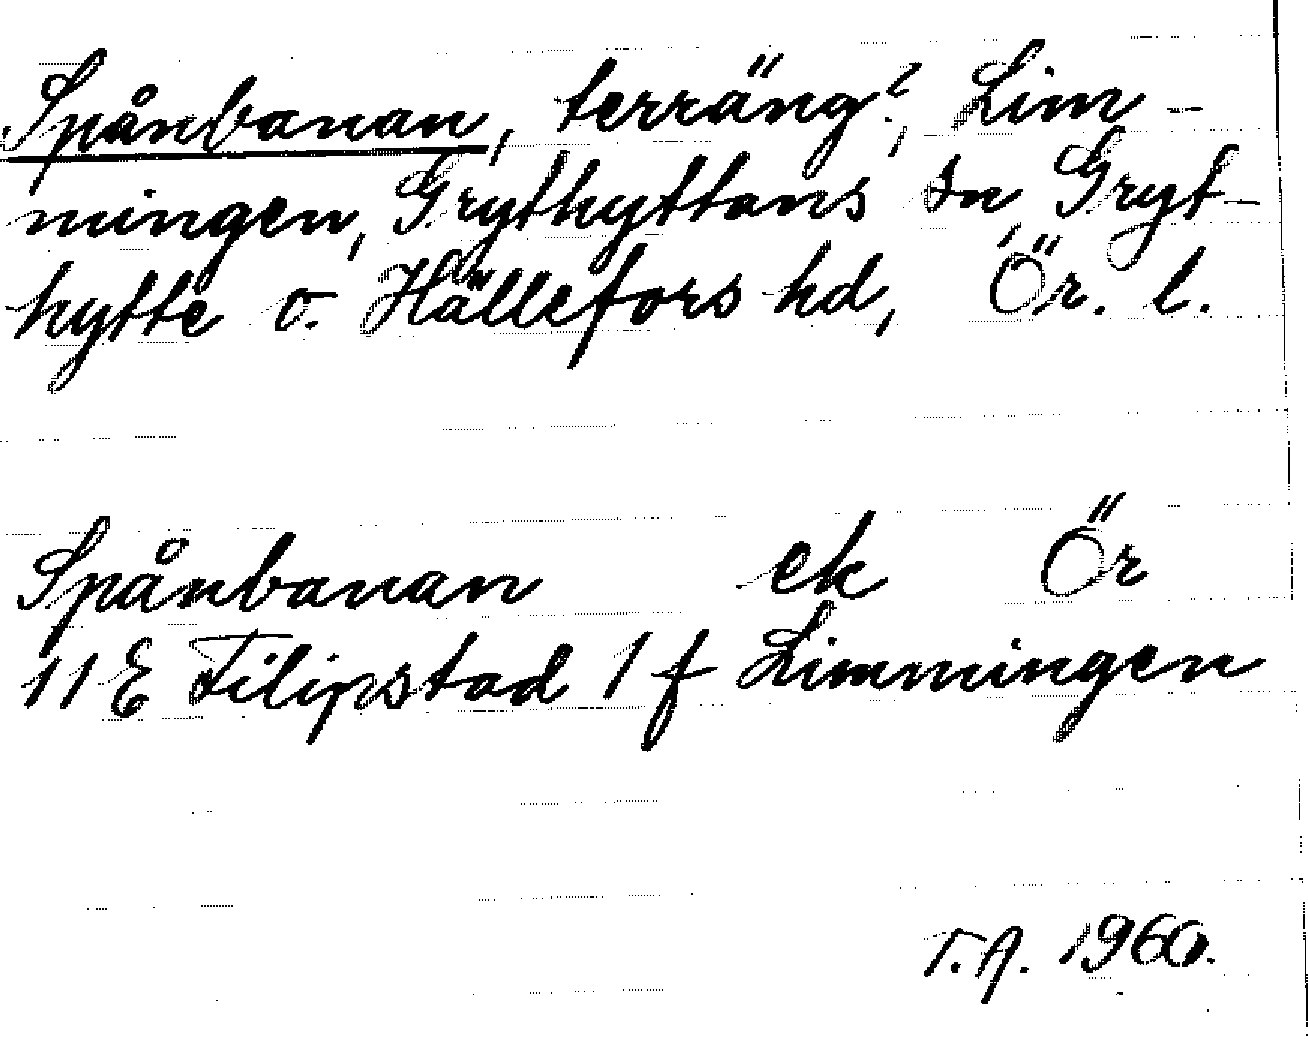 Spånbanan, terräng?, Lim-
mingen, Grythyttans sn, Gryt-
hytte o. Hällefors hd, Ör. l.
Spånbanan ek Ör
11 E Filipstad 1 f Limmingen
T.A. 1960.